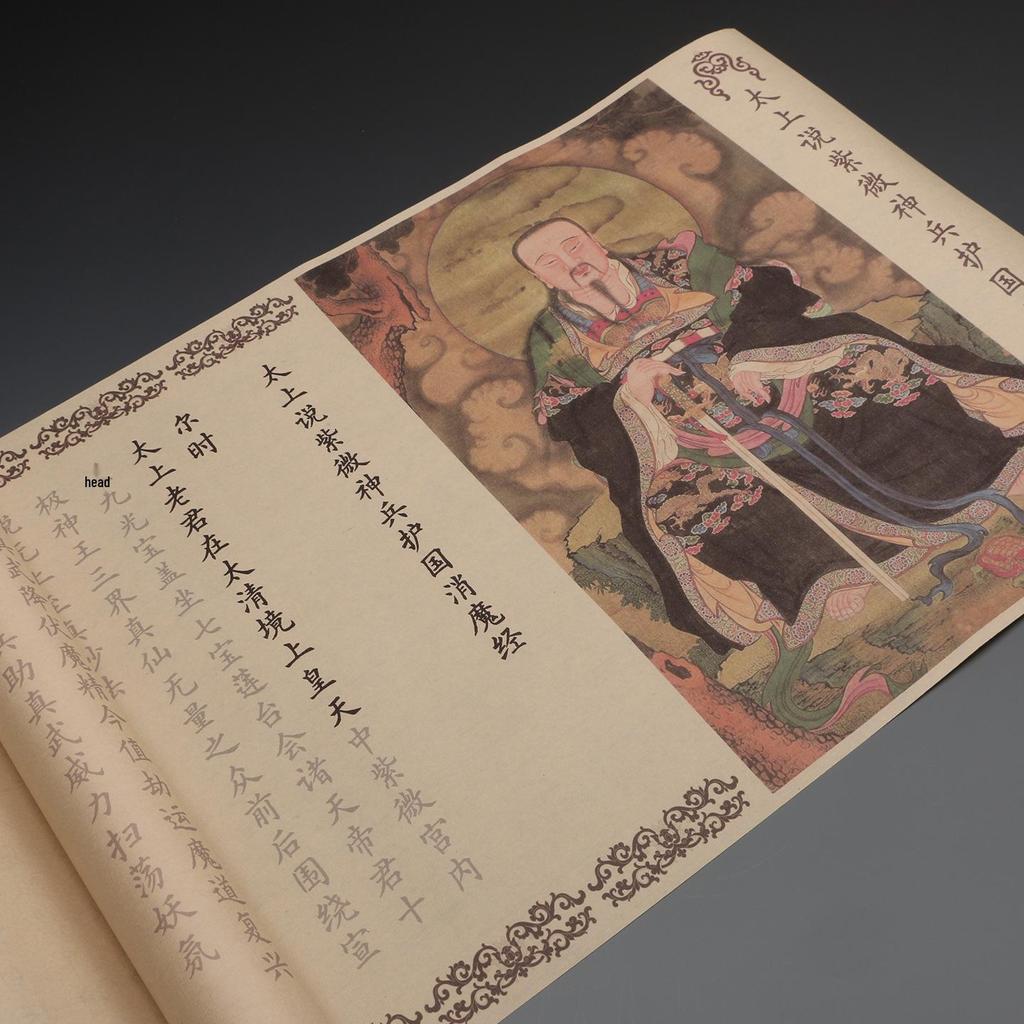 太上说紫微神兵护国
太上说紫微神兵护国消魔经
尔时
太上老君在太清境上皇天中紫微宫内
九光宝盖坐七宝莲台会诸天帝君十
极神王三界真仙无量之众前后围绕宣
说 上 真妙法今值劫运魔道复兴
武降伏魔精
兵助真武威力扫荡妖氛
head